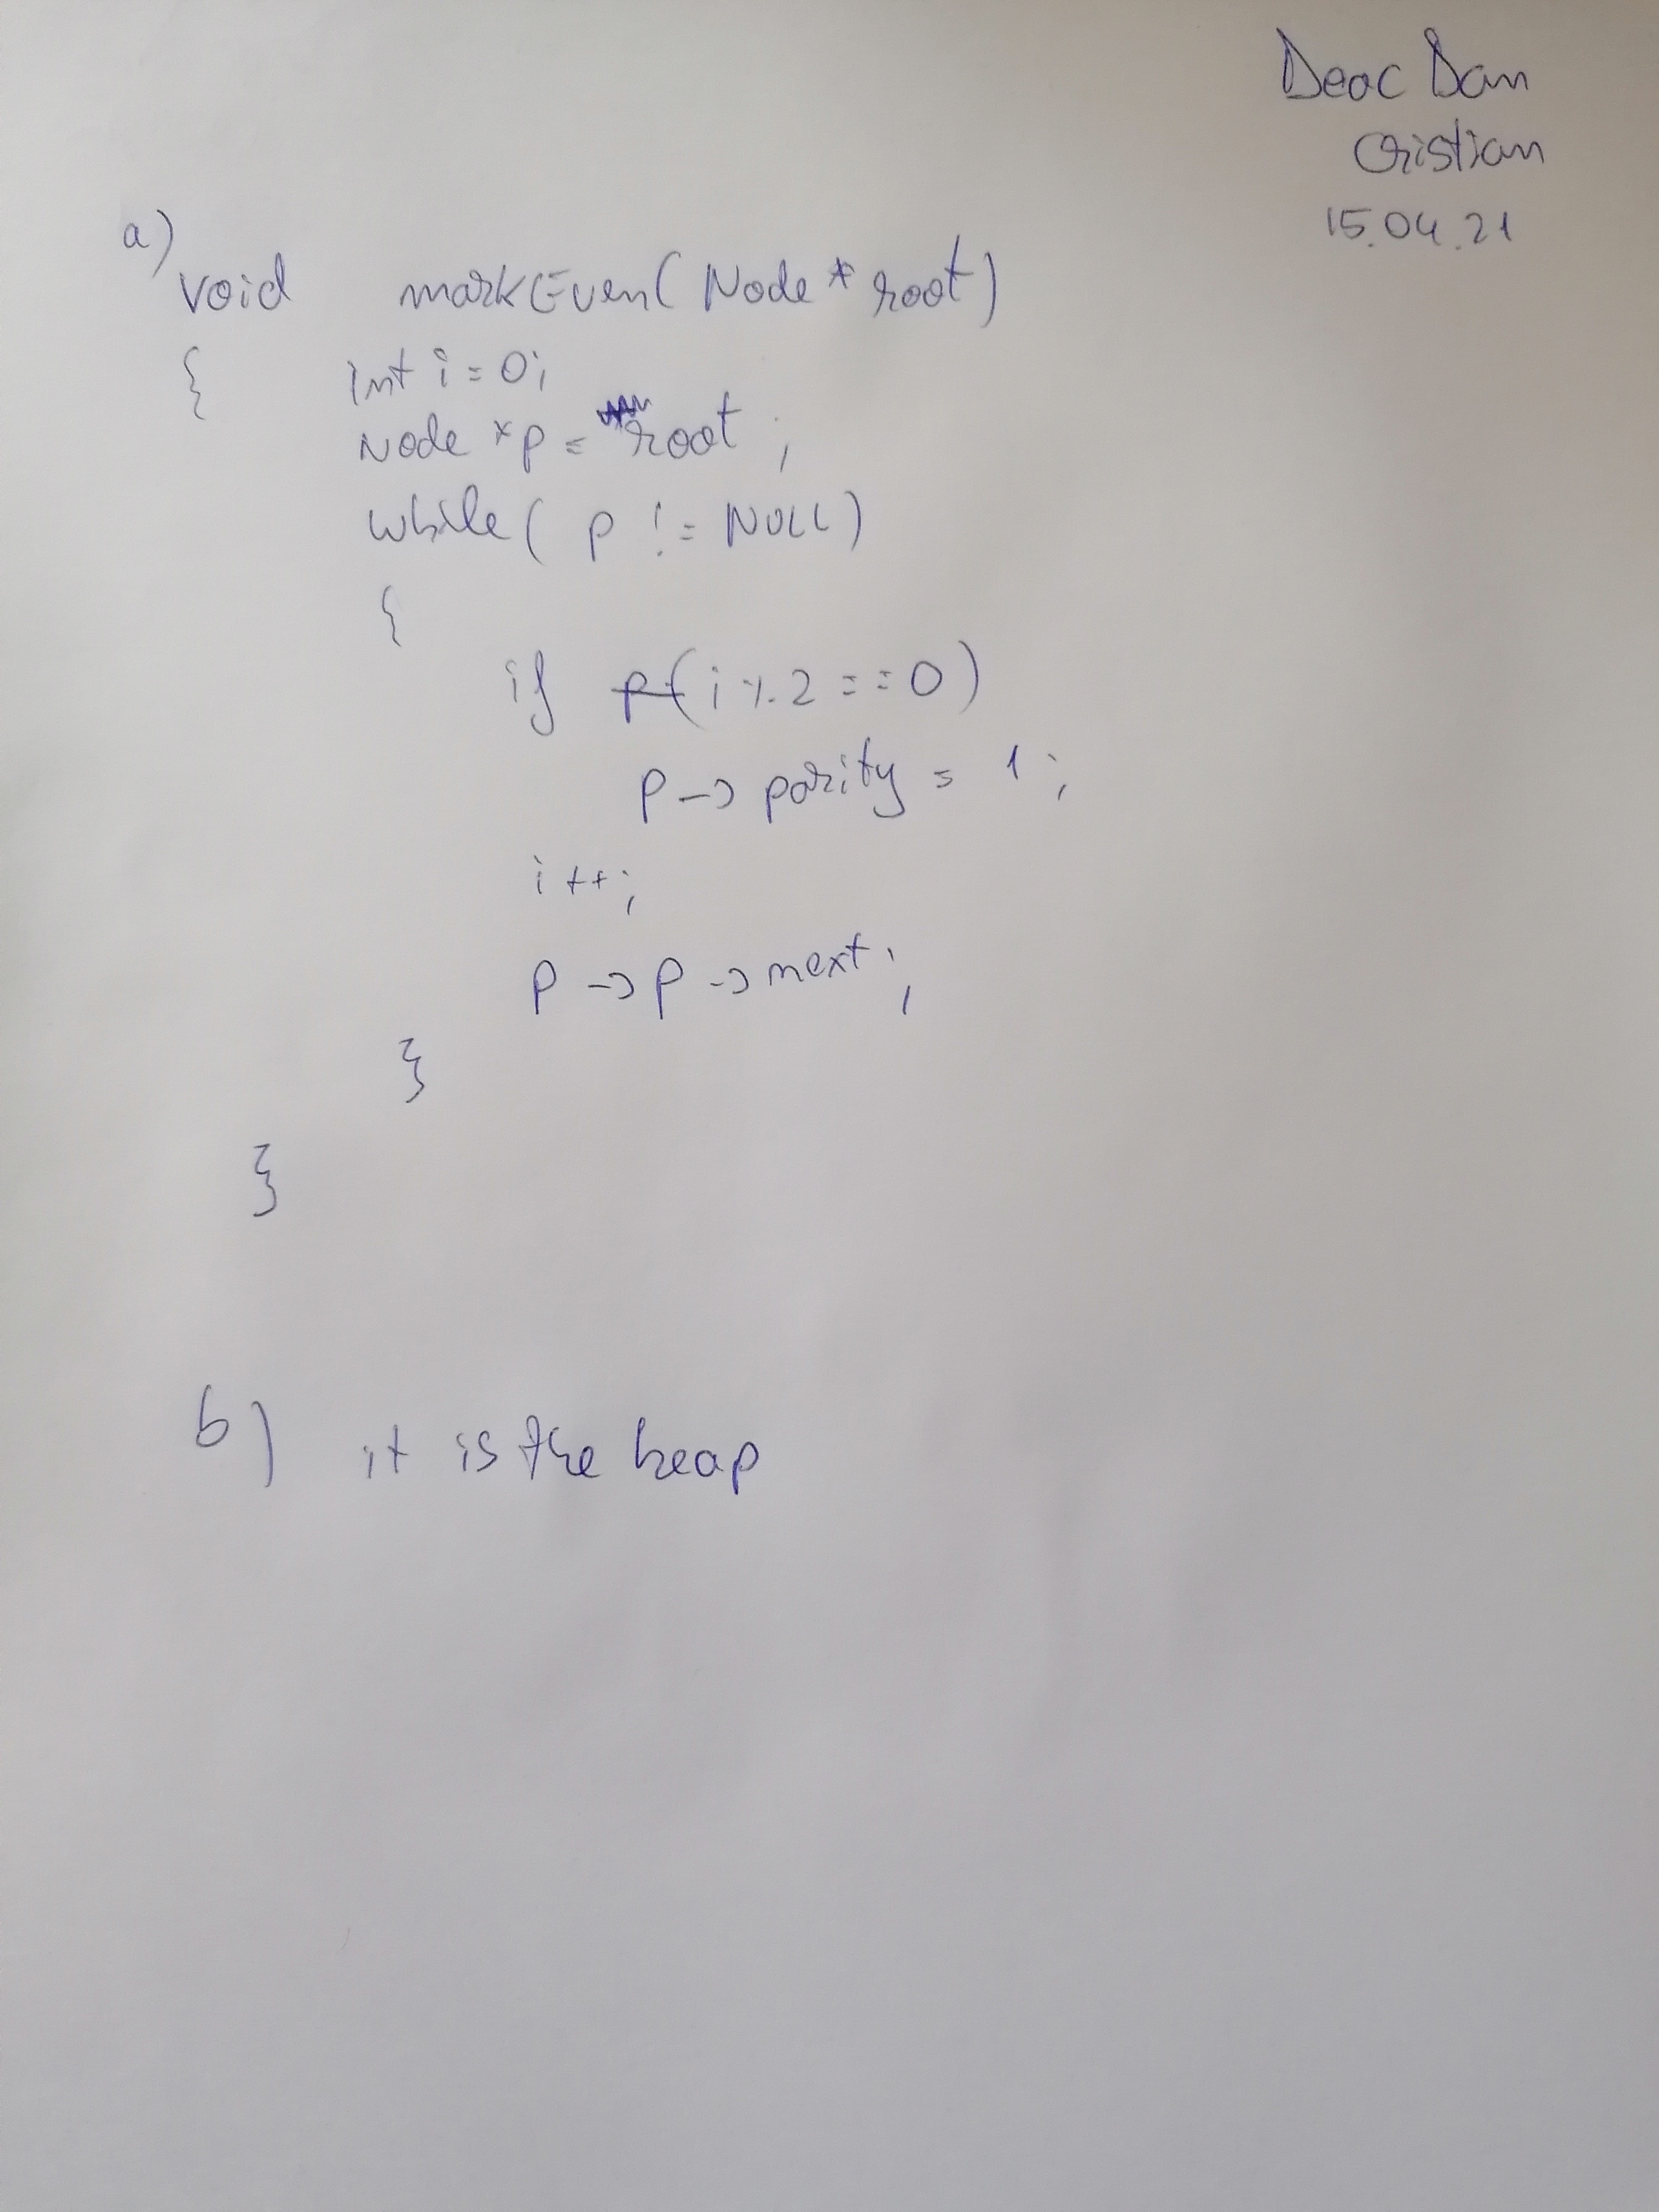 Deac Dan
Cristian
15.04.21
a)
void markEven( Node * root)
{ int i = 0;
Node *p = root ;
while( p != NULL)
{
if (i % 2 == 0)
p -> parity = 1 ;
i ++;
p -> p -> next ;
}
}
b) it is the heap